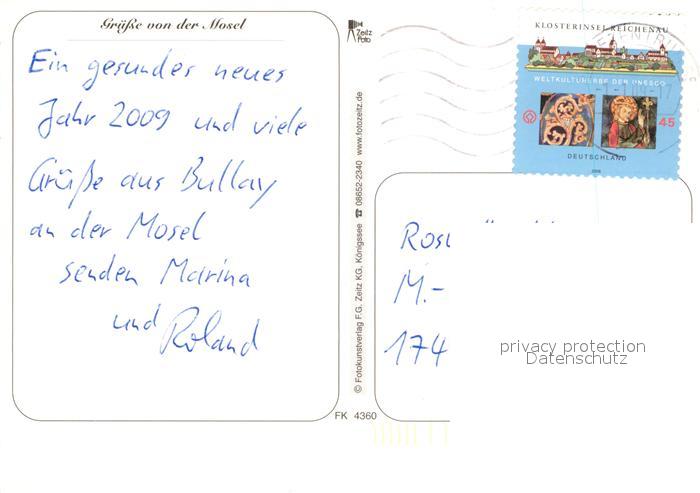 Grüße von der Mosel
Ein gesundes neues
Jahr 2009 und viele
Grüße aus Bullay
an der Mosel
senden Marina
und Roland
Zeitz
Foto
© Fotokunstverlag F.G. Zeitz KG, Königssee ☎ 08652-2340 www.fotozeitz.de
FK 4360
KLOSTERINSEL REICHENAU
WELTKULTURERBE DER UNESCO
45
DEUTSCHLAND
2008
M.-
174
privacy protection
Datenschutz